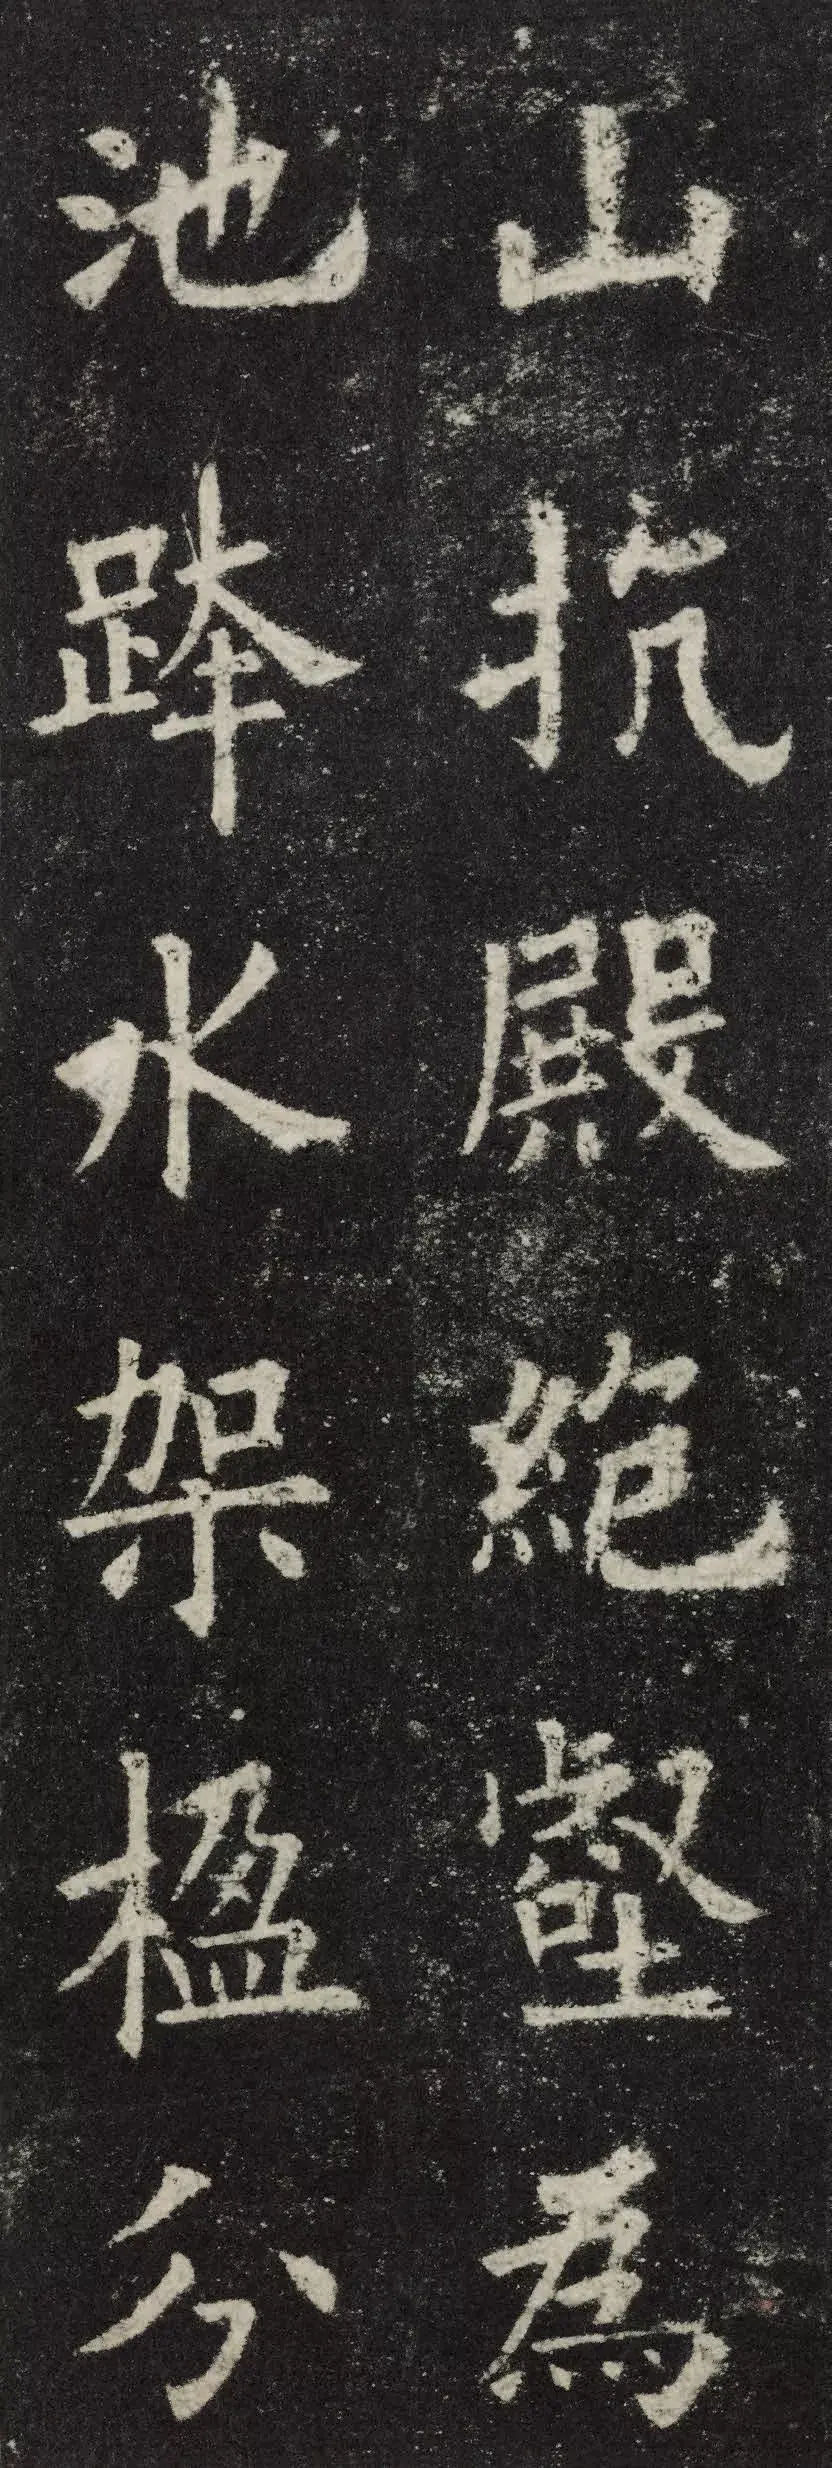 山抗殿絶壑為
池跨水架楹分